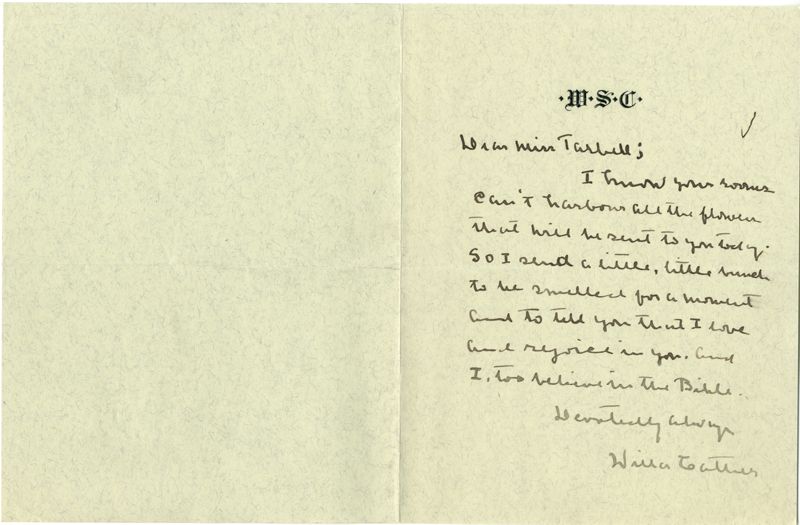 ·W·S·C·
Dear Miss Tarbell;
I know your rooms
can't harbour all the flowers
that will be sent to you today.
So I send a little, little bunch
to be smelled for a moment
and to tell you that I love
and rejoice in you. And
I, too believe in the Bible.
Devotedly always
Willa Cather